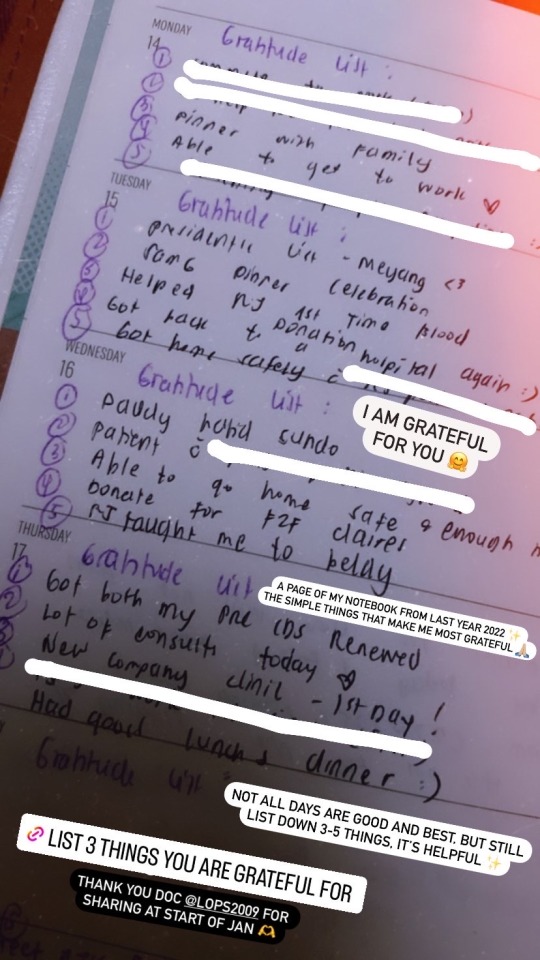 MONDAY
14
Gratitude List :
①
②
③ Dinner with family
④ Able to get to work ♡
⑤
TUESDAY
15
Gratitude List :
① Presidential List - Meyang <3
② Dinner Celebration
③ Helped NJ 1st Time Blood Donation
④ Got back to a hospital again :)
⑤ Got home safely
WEDNESDAY
16
Gratitude List :
① Daddy hatid sundo
② Patient
③ Able to go home safe & enough
④ Donate for F2F claires
⑤ NJ taught me to belay
I AM GRATEFUL
FOR YOU 🤗
THURSDAY
17
Gratitude List
① Got both my PRC IDs Renewed
② Lot of consults today ♡
③ New company clinic - 1st Day !
Had good lunch & dinner :)
A PAGE OF MY NOTEBOOK FROM LAST YEAR 2022 ✨
THE SIMPLE THINGS THAT MAKE ME MOST GRATEFUL 🙏🏼
Gratitude List :
NOT ALL DAYS ARE GOOD AND BEST, BUT STILL
LIST DOWN 3-5 THINGS, IT'S HELPFUL ✨
LIST 3 THINGS YOU ARE GRATEFUL FOR
THANK YOU DOC @LOPS2009 FOR
SHARING AT START OF JAN 🫶